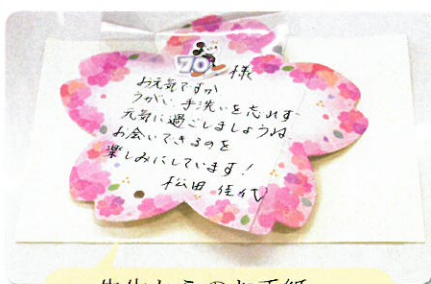 様
お元気ですか
うがい、手洗いを忘れず
元気に過ごしましょうね
お会いできるのを
楽しみにしています!
松田 佳代
先生からのお手紙